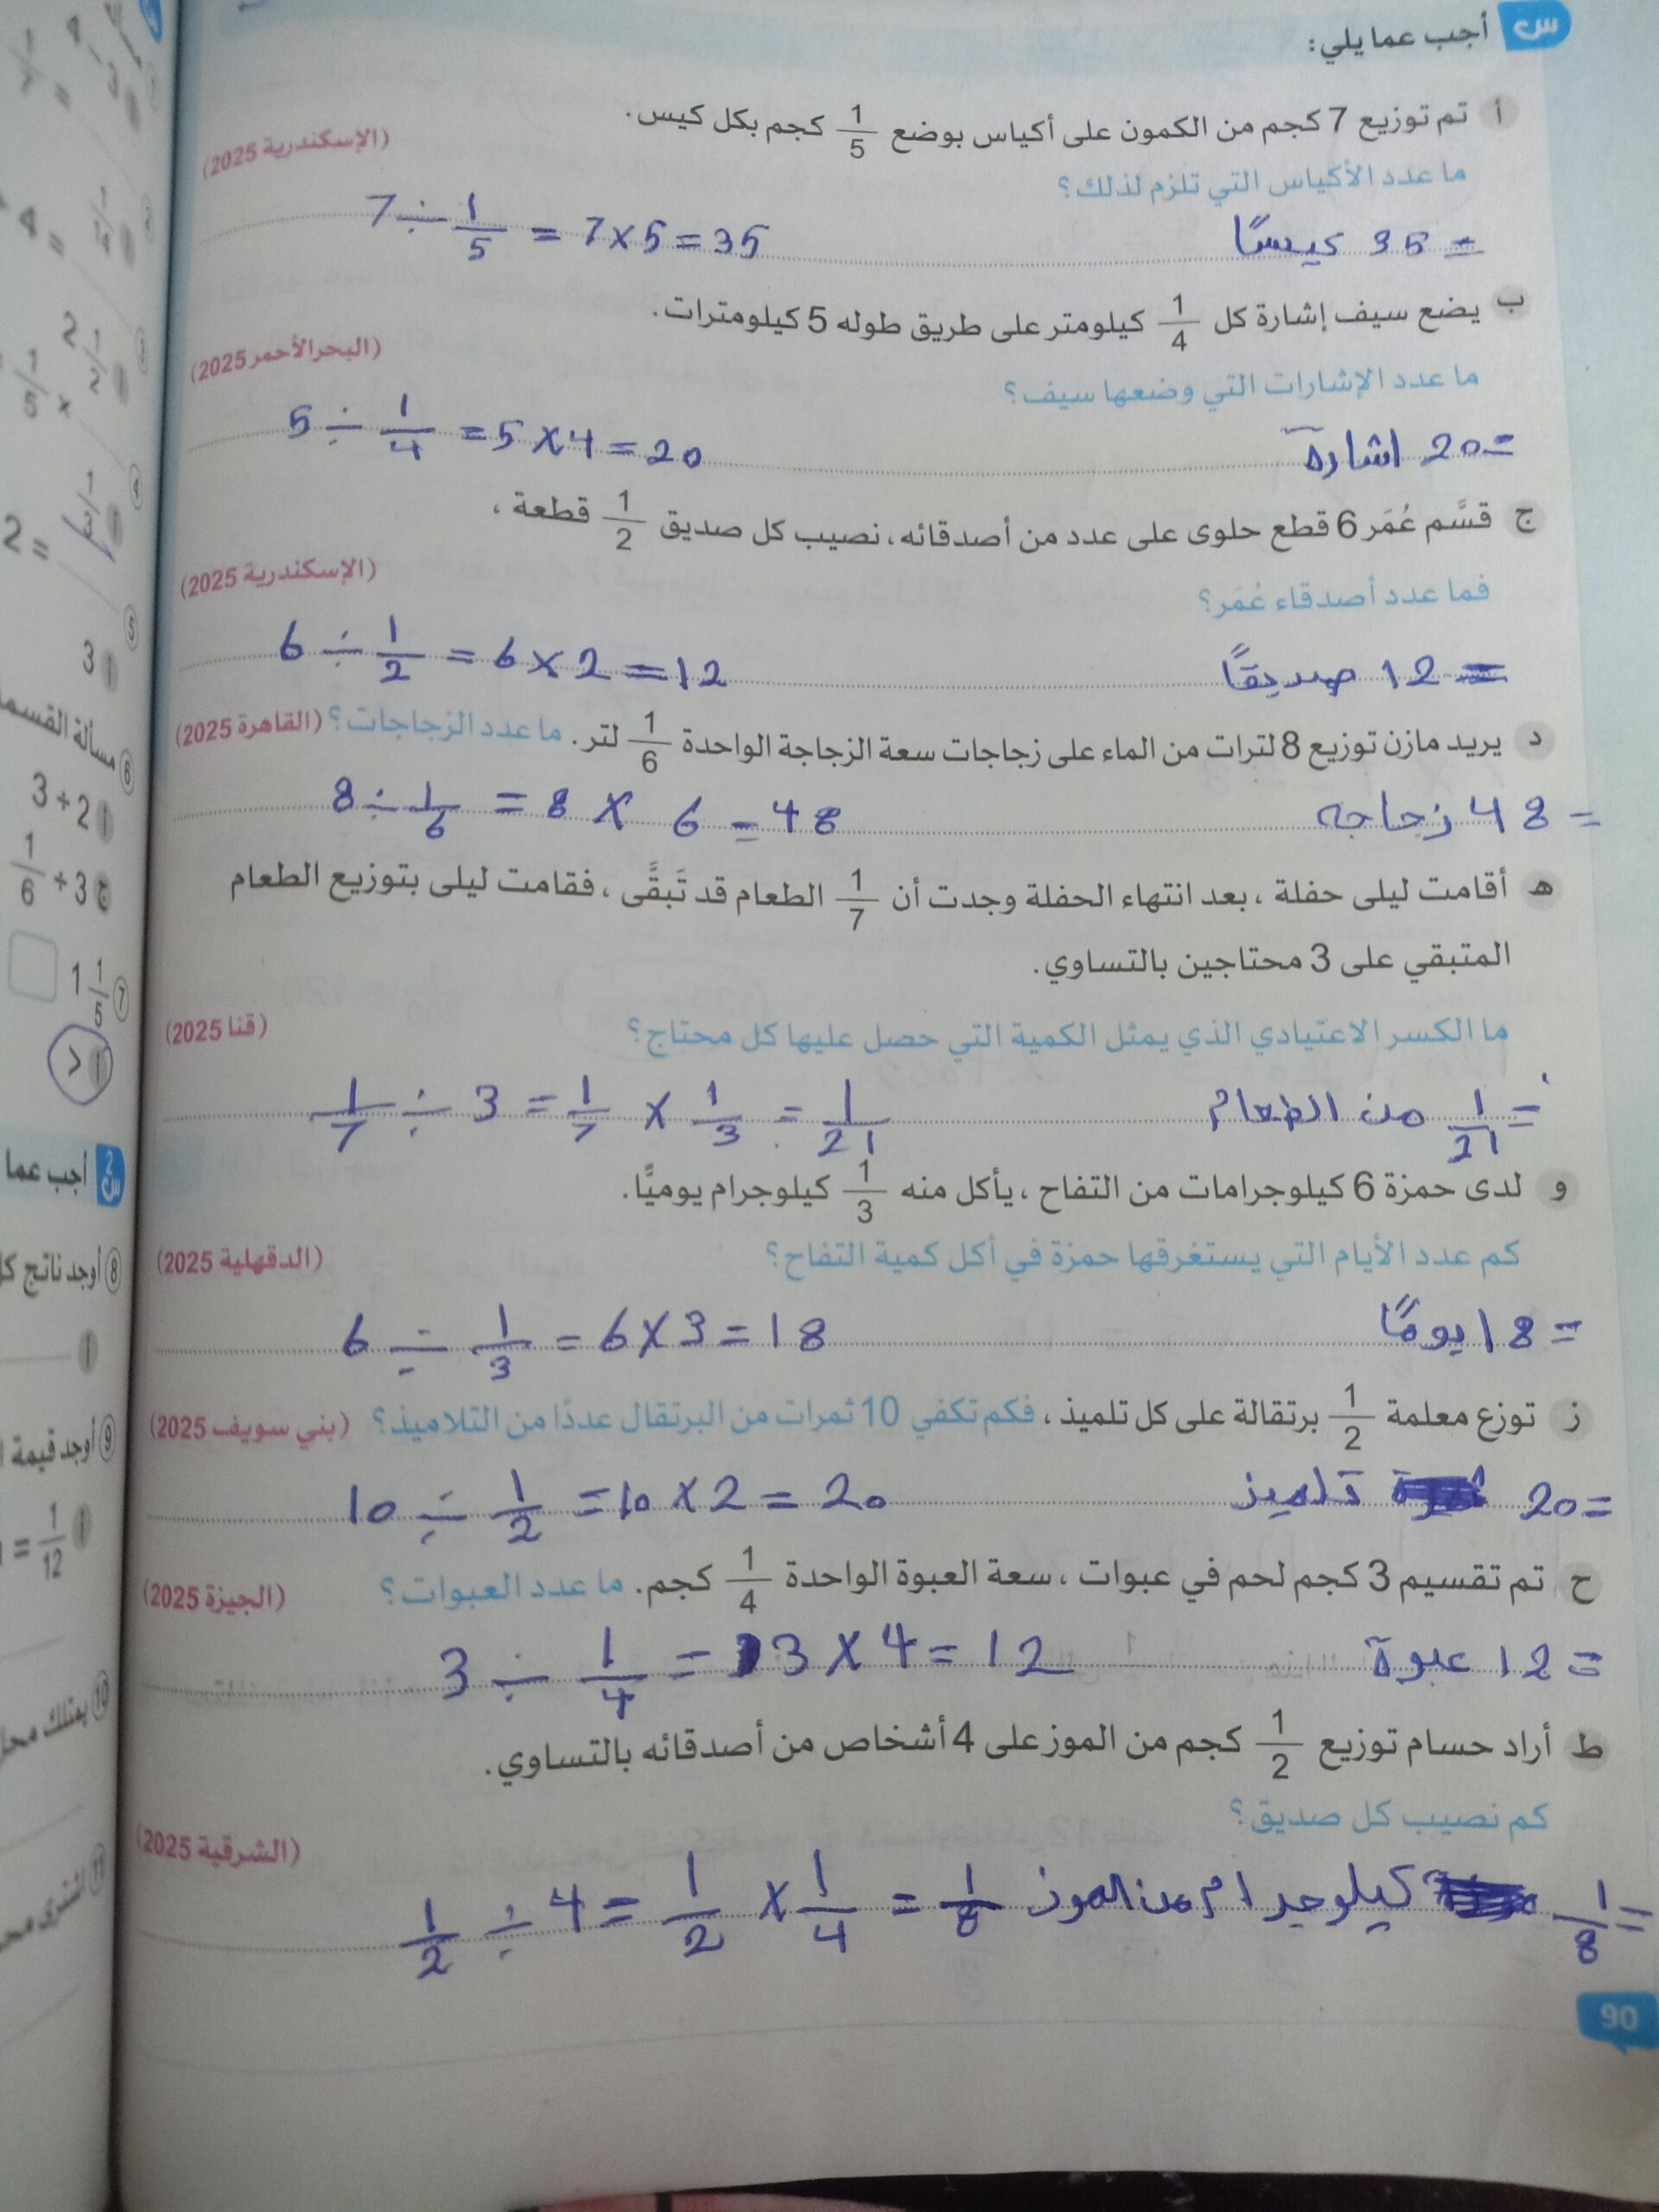 س أجب عما يلي:
أ تم توزيع 7 كجم من الكمون على أكياس بوضع 1/5 كجم بكل كيس.
ما عدد الأكياس التي تلزم لذلك؟ (الإسكندرية 2025)
7 ÷ 1/5 = 7 × 5 = 35 = 35 كيسًا
ب يضع سيف إشارة كل 1/4 كيلومتر على طريق طوله 5 كيلومترات.
ما عدد الإشارات التي وضعها سيف؟ (البحر الأحمر 2025)
5 ÷ 1/4 = 5 × 4 = 20 = 20 اشارة
ج قسَّم عُمَر 6 قطع حلوى على عدد من أصدقائه، نصيب كل صديق 1/2 قطعة،
فما عدد أصدقاء عُمَر؟ (الإسكندرية 2025)
6 ÷ 1/2 = 6 × 2 = 12 = 12 صديقًا
د يريد مازن توزيع 8 لترات من الماء على زجاجات سعة الزجاجة الواحدة 1/6 لتر. ما عدد الزجاجات؟ (القاهرة 2025)
8 ÷ 1/6 = 8 × 6 = 48 = 48 زجاجه
هـ أقامت ليلى حفلة، بعد انتهاء الحفلة وجدت أن 1/7 الطعام قد تَبقَّى، فقامت ليلى بتوزيع الطعام
المتبقي على 3 محتاجين بالتساوي.
ما الكسر الاعتيادي الذي يمثل الكمية التي حصل عليها كل محتاج؟ (قنا 2025)
1/7 ÷ 3 = 1/7 × 1/3 = 1/21 = 1/21 من الطعام
و لدى حمزة 6 كيلوجرامات من التفاح، يأكل منه 1/3 كيلوجرام يوميًّا.
كم عدد الأيام التي يستغرقها حمزة في أكل كمية التفاح؟ (الدقهلية 2025)
6 ÷ 1/3 = 6 × 3 = 18 = 18 يومًا
ز توزع معلمة 1/2 برتقالة على كل تلميذ، فكم تكفي 10 ثمرات من البرتقال عددًا من التلاميذ؟ (بني سويف 2025)
10 ÷ 1/2 = 10 × 2 = 20 = 20 تلميز
ح تم تقسيم 3 كجم لحم في عبوات، سعة العبوة الواحدة 1/4 كجم. ما عدد العبوات؟ (الجيزة 2025)
3 ÷ 1/4 = 3 × 4 = 12 = 12 عبوة
ط أراد حسام توزيع 1/2 كجم من الموز على 4 أشخاص من أصدقائه بالتساوي.
كم نصيب كل صديق؟ (الشرقية 2025)
1/2 ÷ 4 = 1/2 × 1/4 = 1/8 = 1/8 كيلوجرام من الموز
90
مسألة القسمة
6
3 ÷ 2
ج 3 ÷ 1/6
7
1 1/5
<
س2 أجب عما
8 أوجد ناتج
9 أوجد قيمة
= 1/12
10 يمتلك
11 اشترى